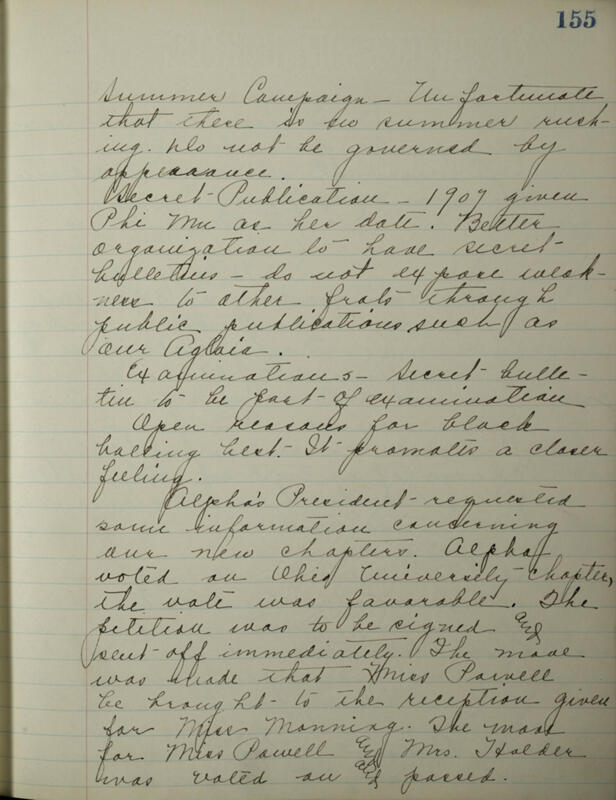 155
Summer Campaign - Unfortunate
that there is no summer rush-
ing. Do not be governed by
appearance.
Secret Publication - 1907 given
Phi Mu as her date. Better
organization to have secret
bulletins - do not expose weak-
ness to other frats through
public publications such as
our Aglaia.
Examinations - Secret bulle-
tin to be part of examination
Open reasons for black
balling best. It promotes a closer
feeling.
Alpha's President requested
some information concerning
our new chapters. Alpha
voted on Ohio University chapter,
the vote was favorable. The
petition was to be signed and
sent off immediately. The move
was made that Miss Powell
be brought to the reception given
for Miss Manning. The move
for Miss Powell and Mrs. Holder
was voted on and passed.